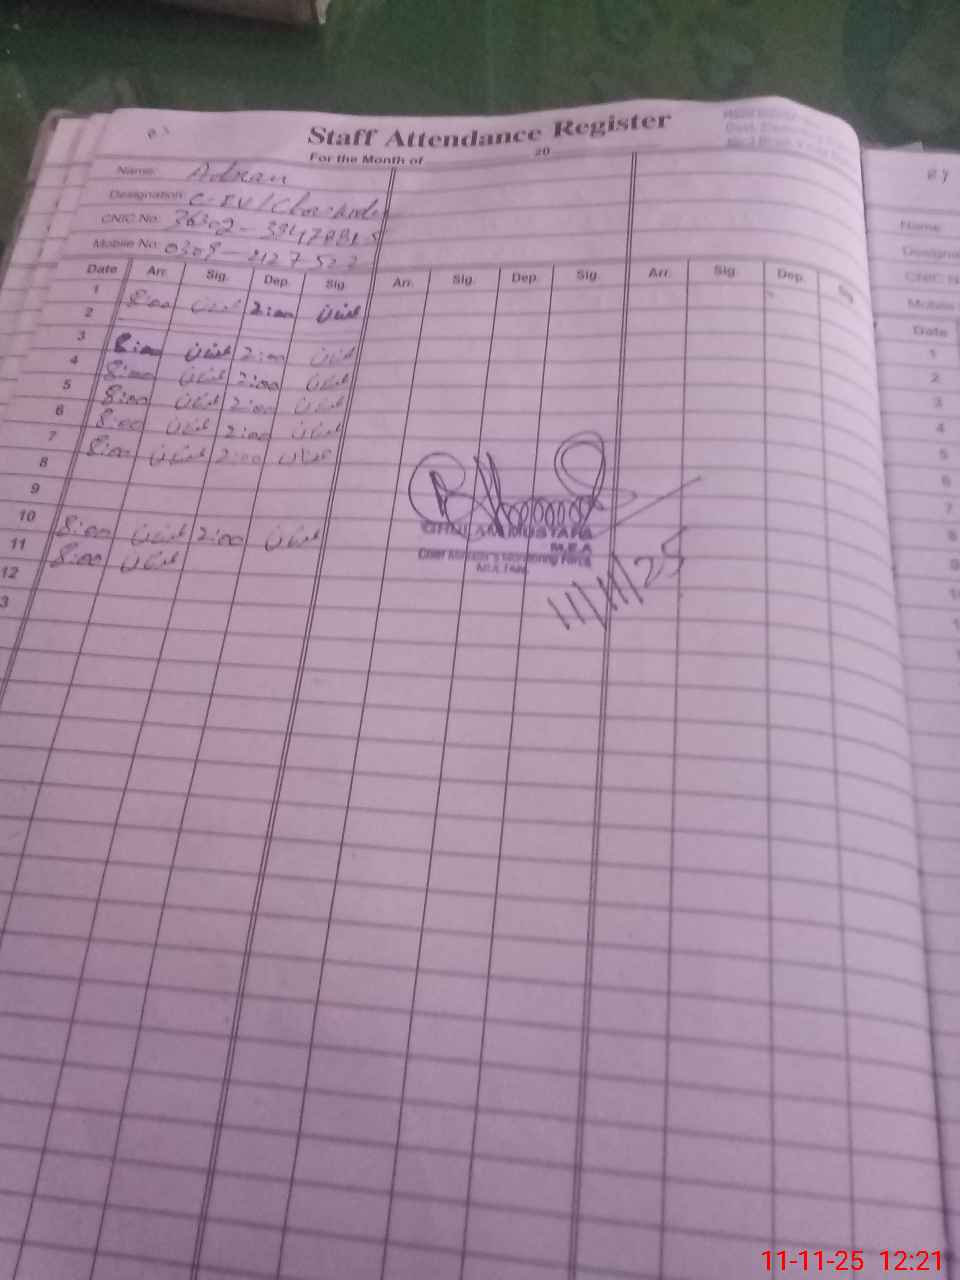 Staff Attendance Register
For the Month of 20
Name: Adnan
Designation:
CNIC No:
Mobile No: 0309-2127522
Date Arr. Sig. Dep. Sig. Arr. Sig. Dep. Sig. Arr. Sig. Dep. Sig
1 8:00 عدنان 2:00 عدنان
2
3 8:00 عدنان 2:00 عدنان
4 8:00 عدنان 2:00 عدنان
5 8:00 عدنان 2:00 عدنان
6 8:00 عدنان 2:00 عدنان
7 8:00 عدنان 2:00 عدنان
8
9
10 8:00 عدنان 2:00 عدنان
11 8:00 عدنان
12
3
GHULAM MUSTAFA
M.E.A
Chief Minister's Monitoring Force
MULTAN
11/11/25
Name
Designa
CNIC N
Mobile
Date
1
2
3
4
5
6
7
8
11-11-25 12:21